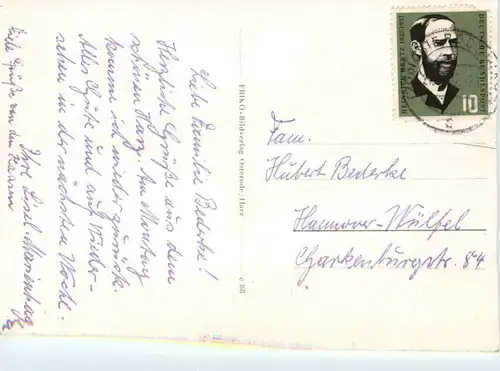 Liebe Familie Bederke!
Herzliche Grüße aus dem
schönen Harz. Am Montag
komme ich wieder zurück.
Alles Gute und auf Wieder-
sehen in der nächsten Woche.
Ihre Liesel
Viele Grüße von den
FRIKO-Bildverlag Osterode/Harz
c 88
DEUTSCHE BUNDESPOST
HEINRICH HERTZ
10
Fam.
Hubert Bederke
Hannover-Wülfel
84